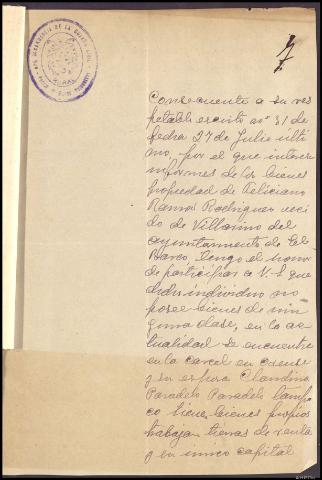 7
Consecuente a su res
petable escrito nº 31 de
fecha 27 de Julio últi
mo, por el que interesa
informes de los bienes
propiedad de Feliciano
Ramos Rodriguez veci
do de Villarino del
ayuntamiento de El
Barco, tengo el honor
de participar a V.S. que
dicho individuo no
posee bienes de nin
guna clase, en la ac
tualidad se encuentra
en la carcel en Orense
y su esposa Claudina
Paradelo Paradelo tampo
co tiene bienes propios
trabajan tierras de renta
y en unico capital